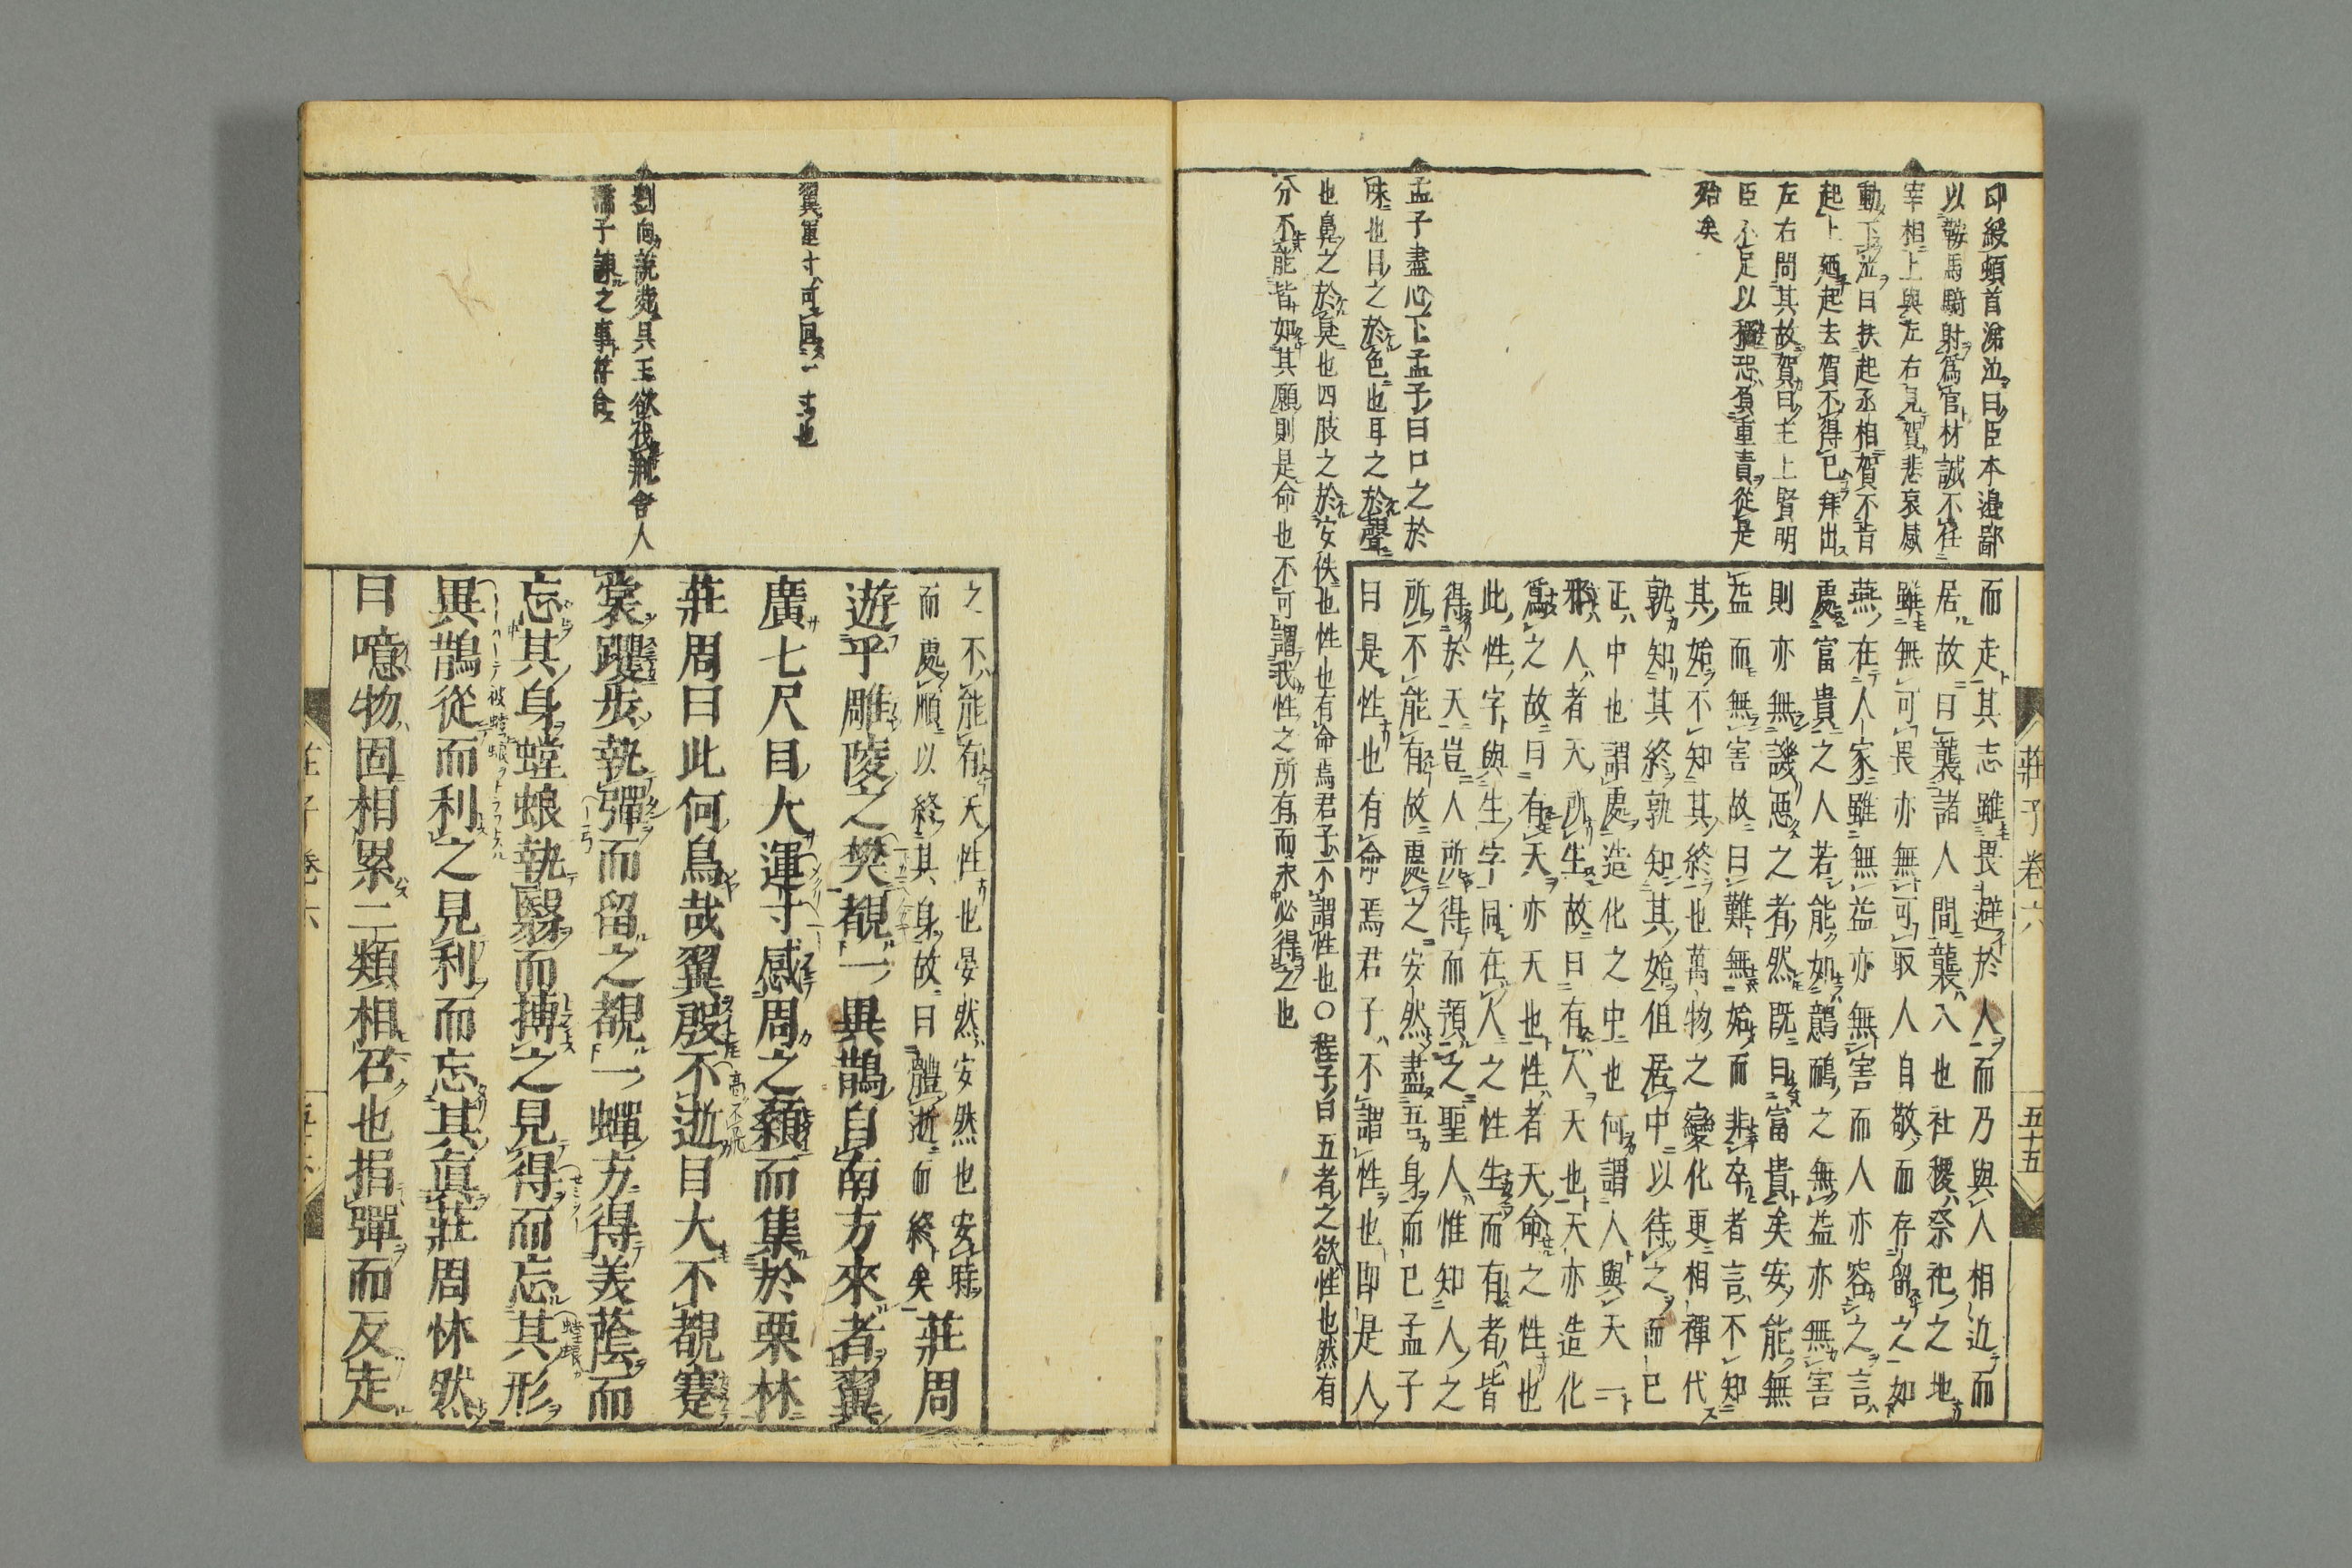 印綬頓首涕泣曰臣本邊鄙
以鞍馬騎射爲官材誠不任
宰相上與左右見賀悲哀感
動下泣曰扶起丞相賀不肯
起上廼起去賀不得已拜出
左右問其故賀曰主上賢明
臣不足以稱恐負重責從是
殆矣
孟子盡心下孟子曰口之於
味也目之於色也耳之於聲
也鼻之於臭也四肢之於安佚也性也有命焉君子不謂性也○程子曰五者之欲性也然有
分不能皆如其願則是命也不可謂我性之所有而求必得之也
莊子卷六
五十五
而走其志雖畏避於人而乃與人相近而
居故曰襲諸人間襲入也社稷祭祀之地
雖無可畏亦無可取人自敬而存留之如
燕在人家雖無益亦無害而人亦容之言
處富貴之人若能如鷾鴯之無益亦無害
則亦無譏惡之者然既曰富貴矣安能無
益而無害故曰難無始而非卒者言不知
其始不知其終也萬物之變化更相禪代
孰知其終孰知其始但居中以待之而已
正中也謂處造化之中也何謂人與天一
邪人者天所生故曰有人天也天亦造化
爲之故曰有天亦天也性者天命之性也
此性字與生字同在人之性生而有者皆
得於天豈人所得而預之聖人惟知人之
所不能有故處之安然盡吾身而已孟子
曰是性也有命焉君子不謂性也即是人
之不能有天性也晏然安然也安時
而處順以終其身故曰體逝而終矣莊周
遊乎雕陵之樊覩一異鵲自南方來者翼
廣七尺目大運寸感周之顙而集於栗林
莊周曰此何鳥哉翼殷不逝目大不覩蹇
裳躩步執彈而留之覩一蟬方得美蔭而
忘其身螳蜋執翳而搏之見得而忘其形
異鵲從而利之見利而忘其眞莊周怵然
曰噫物固相累二類相召也捐彈而反走
翼運寸可回一寸也
劉向說苑吳王欲伐荊舍人
孺子諫之事符合
莊子卷六